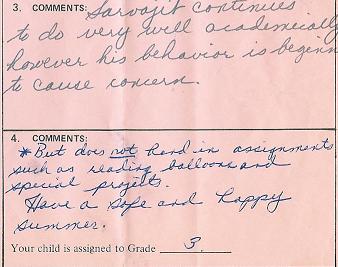 3. COMMENTS: Sarvajit continues
to do very well academically
however his behavior is beginn
to cause concern.
4. COMMENTS:
*But does not hand in assignments
such as reading balloons and
special projects.
Have a safe and happy
summer.
Your child is assigned to Grade 3.